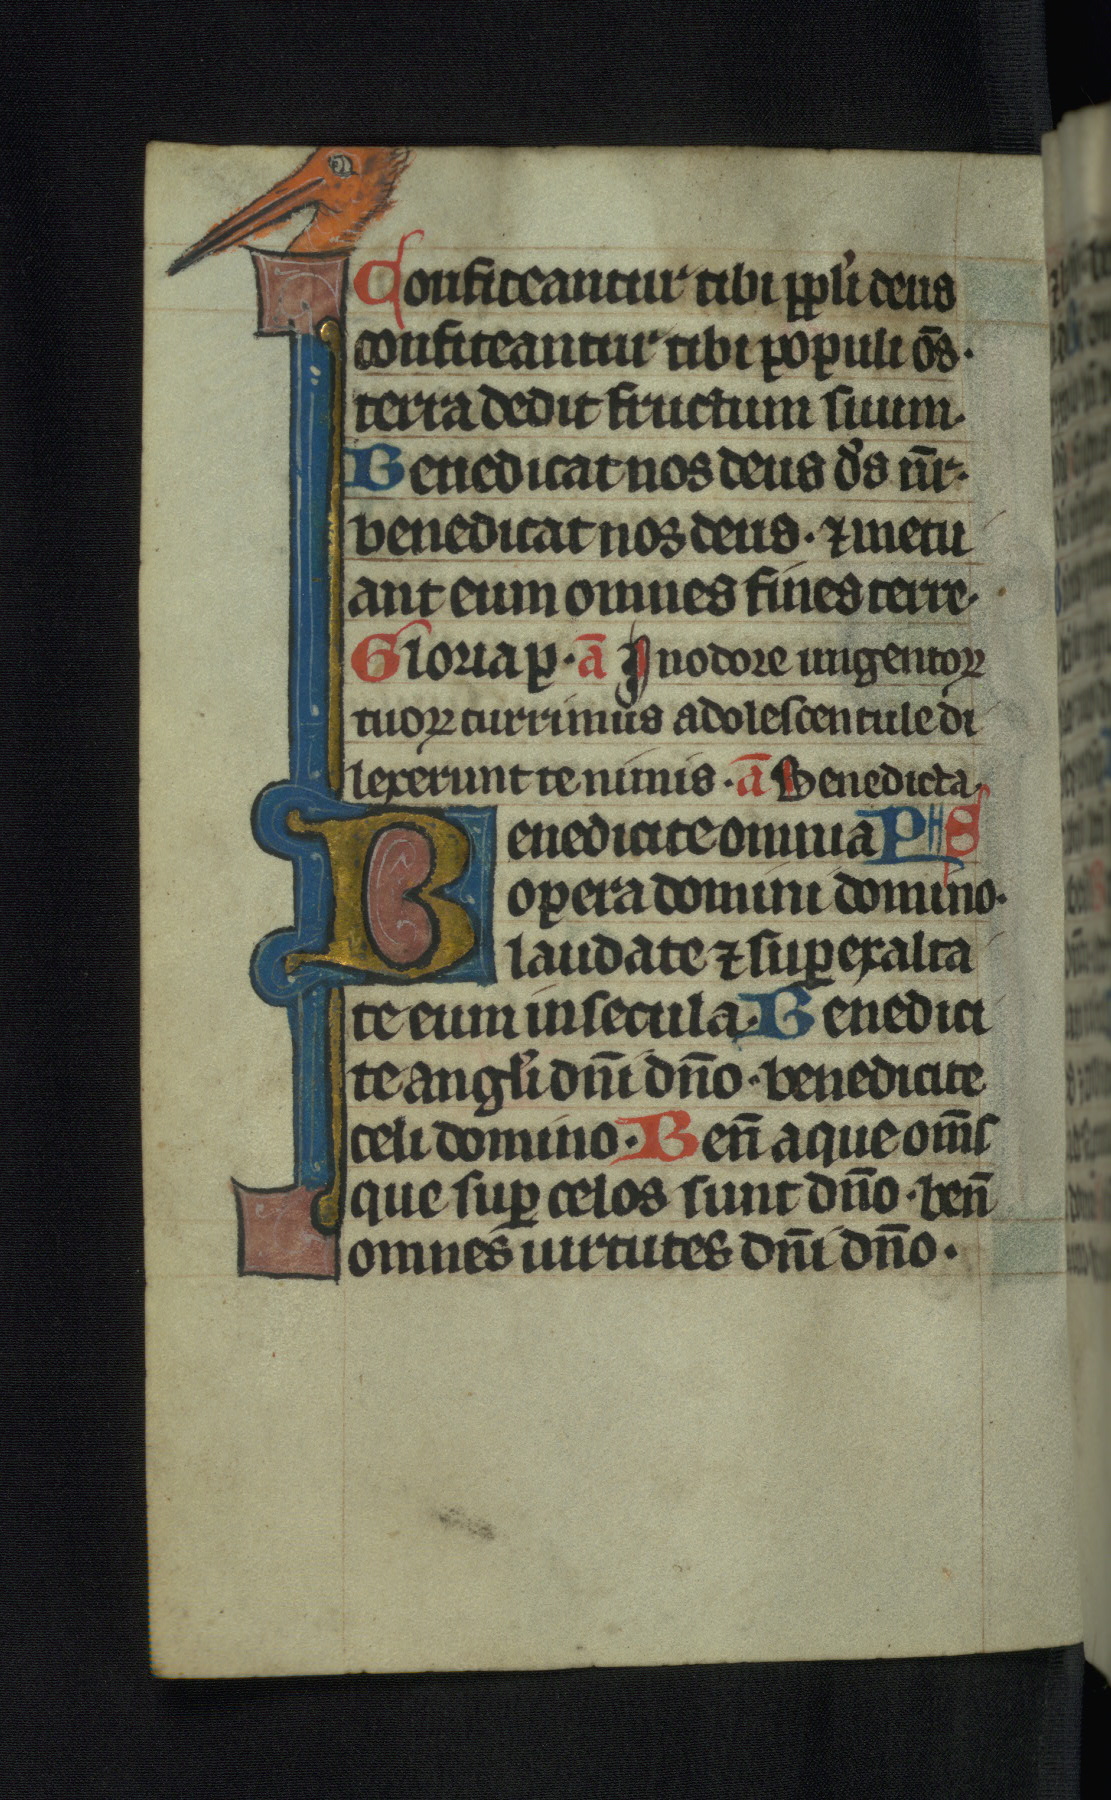 Confiteantur tibi pp̄li deus
confiteantur tibi populi om̄s·
terra dedit fructum suum·
Benedicat nos deus d̄s nr̄·
benedicat nos deus· ⁊ metu
ant eum omnes fines terre·
Gloria p· ā In odore ungentoꝝ
tuoꝝ currimus adolescentule di
lexerunt te nimis· ā Benedicta·
Benedicite omnia PS
opera domini domino·
laudate ⁊ suꝑexalta
te eum in secula· Benedici
te angl̄i dn̄i dn̄o· benedicite
celi domino· Ben̄ aque om̄s
que suꝑ celos sunt dn̄o· ben̄
omnes uirtutes dn̄i dn̄o·